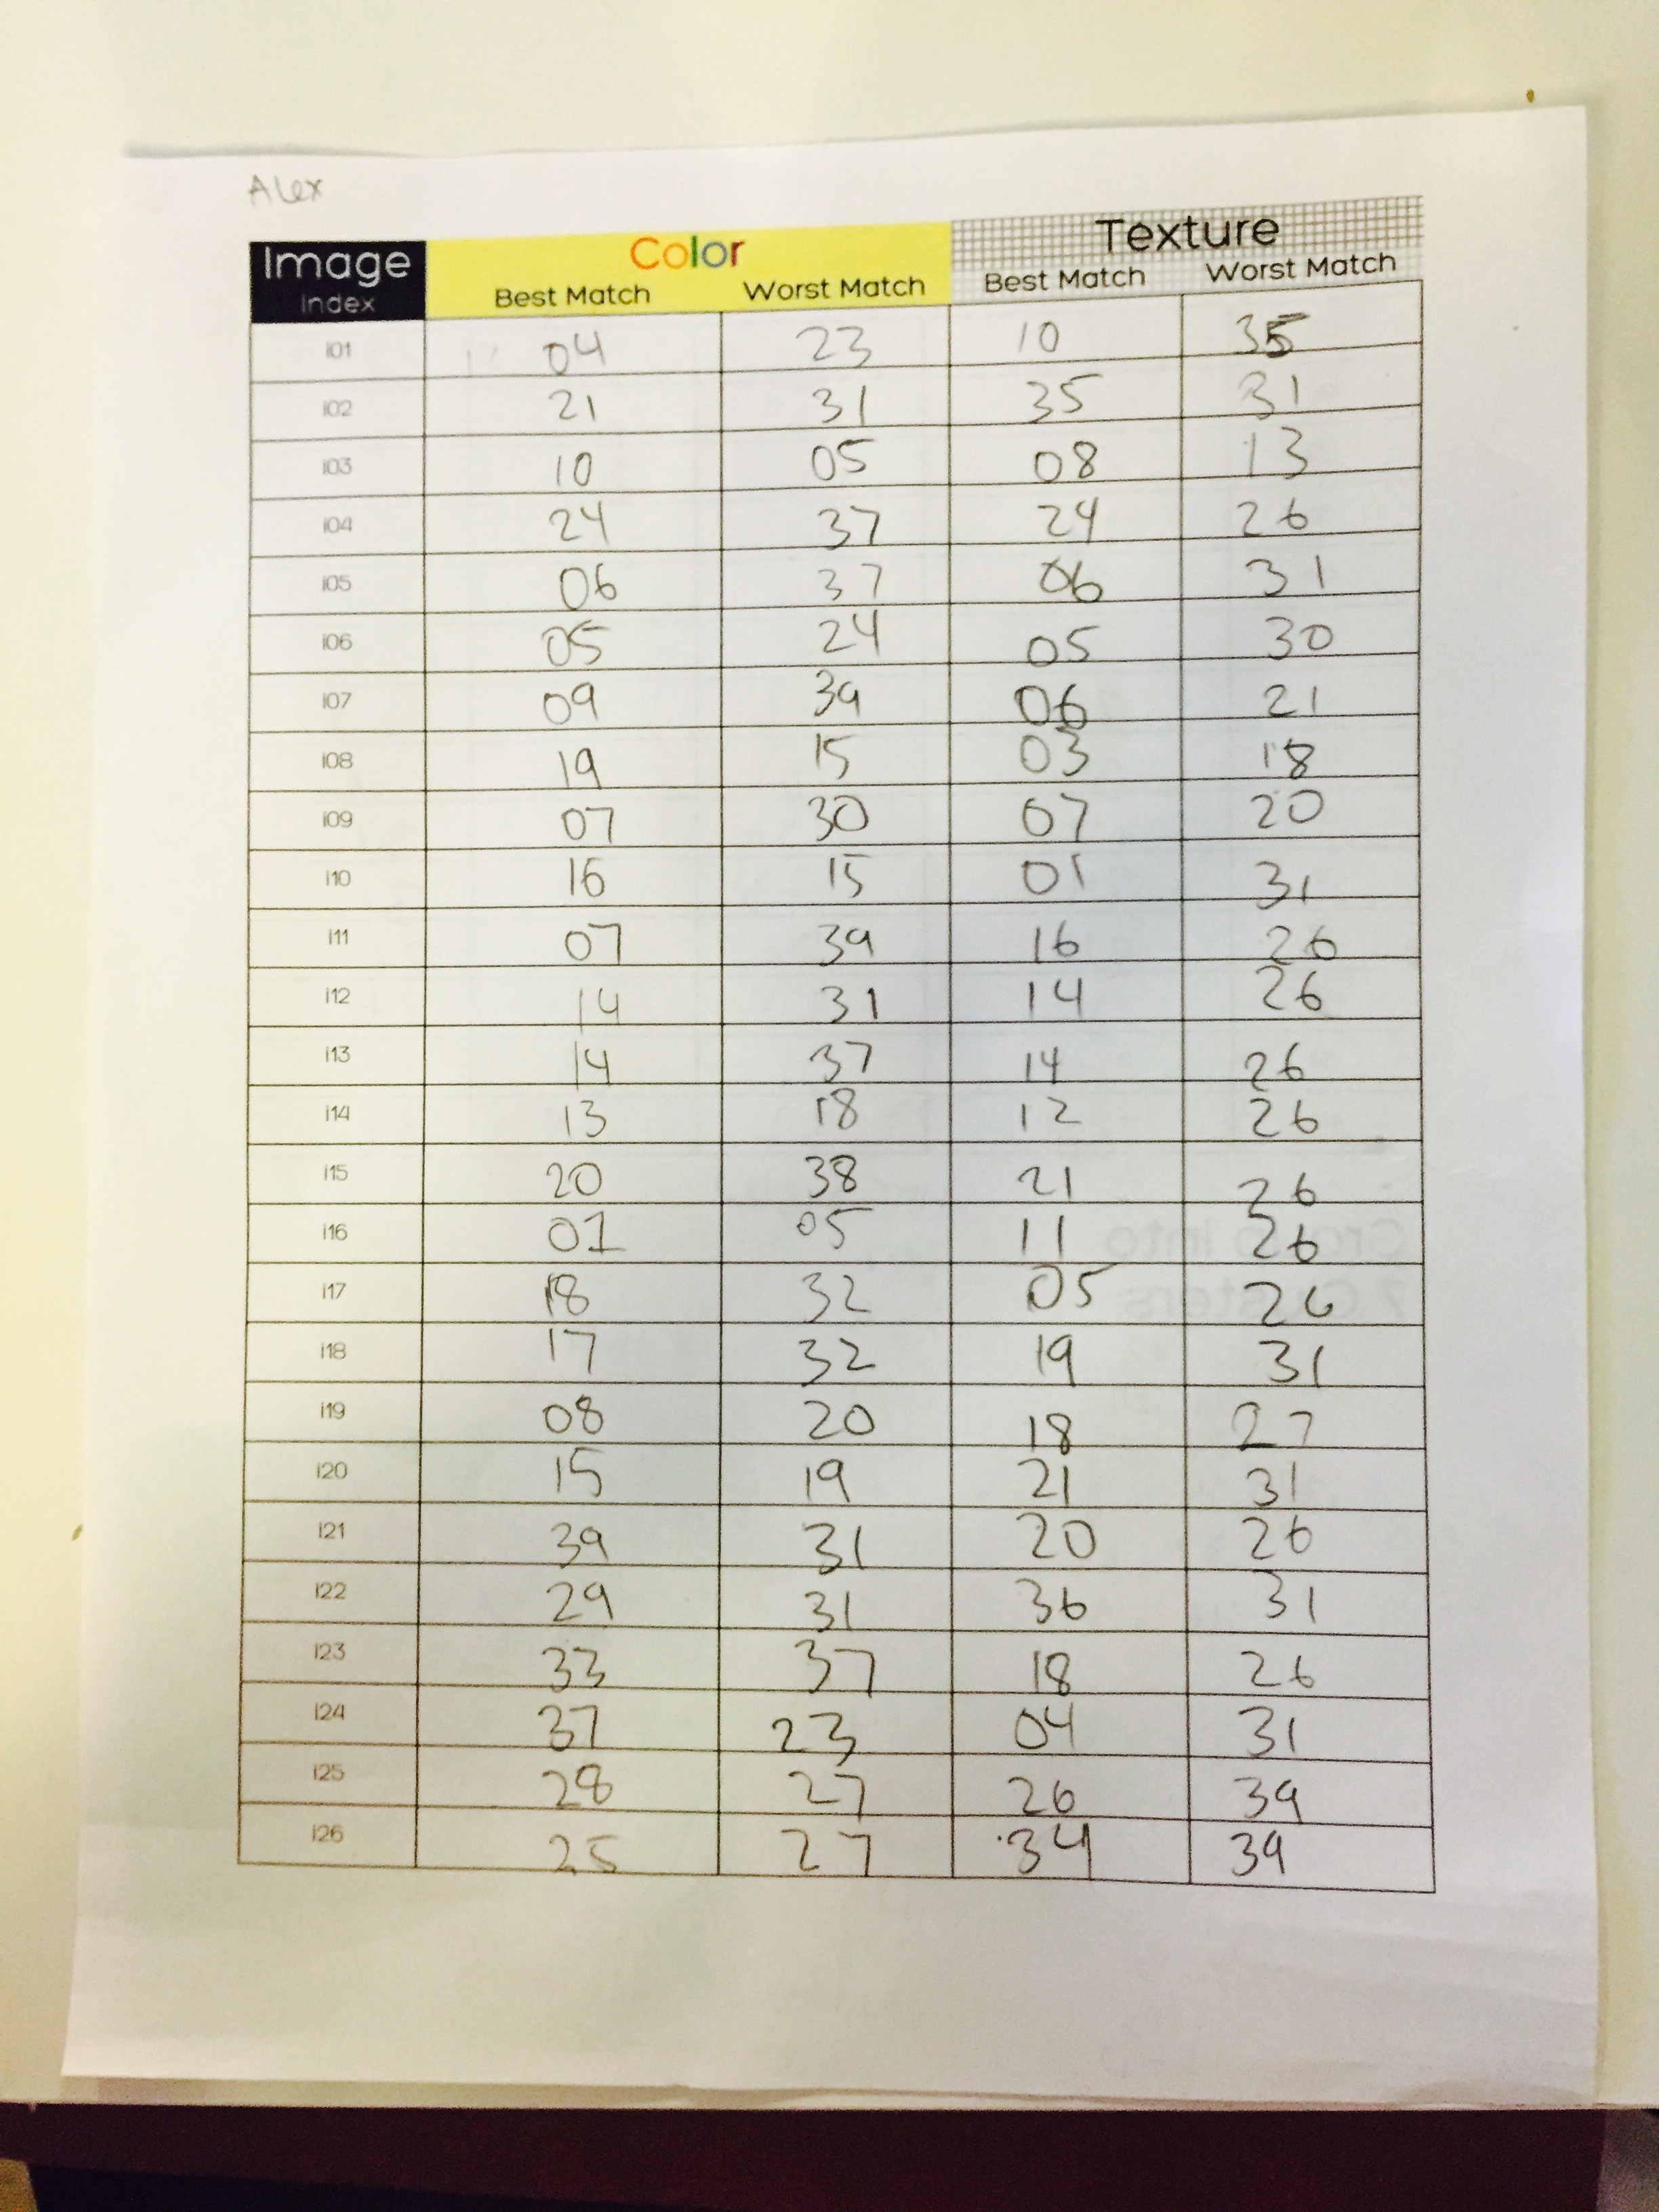 Alex
Image Color Texture
Index Best Match Worst Match Best Match Worst Match
i01 04 23 10 35
i02 21 31 35 31
i03 10 05 08 13
i04 24 37 24 26
i05 06 37 06 31
i06 05 24 05 30
i07 09 39 06 21
i08 19 15 03 18
i09 07 30 07 20
i10 16 15 01 31
i11 07 39 16 26
i12 14 31 14 26
i13 14 37 14 26
i14 13 18 12 26
i15 20 38 21 26
i16 01 05 11 26
i17 18 32 05 26
i18 17 32 19 31
i19 08 20 18 27
i20 15 19 21 31
i21 39 31 20 26
i22 29 31 36 31
i23 33 37 18 26
i24 37 23 04 31
i25 28 27 26 39
i26 25 27 34 39